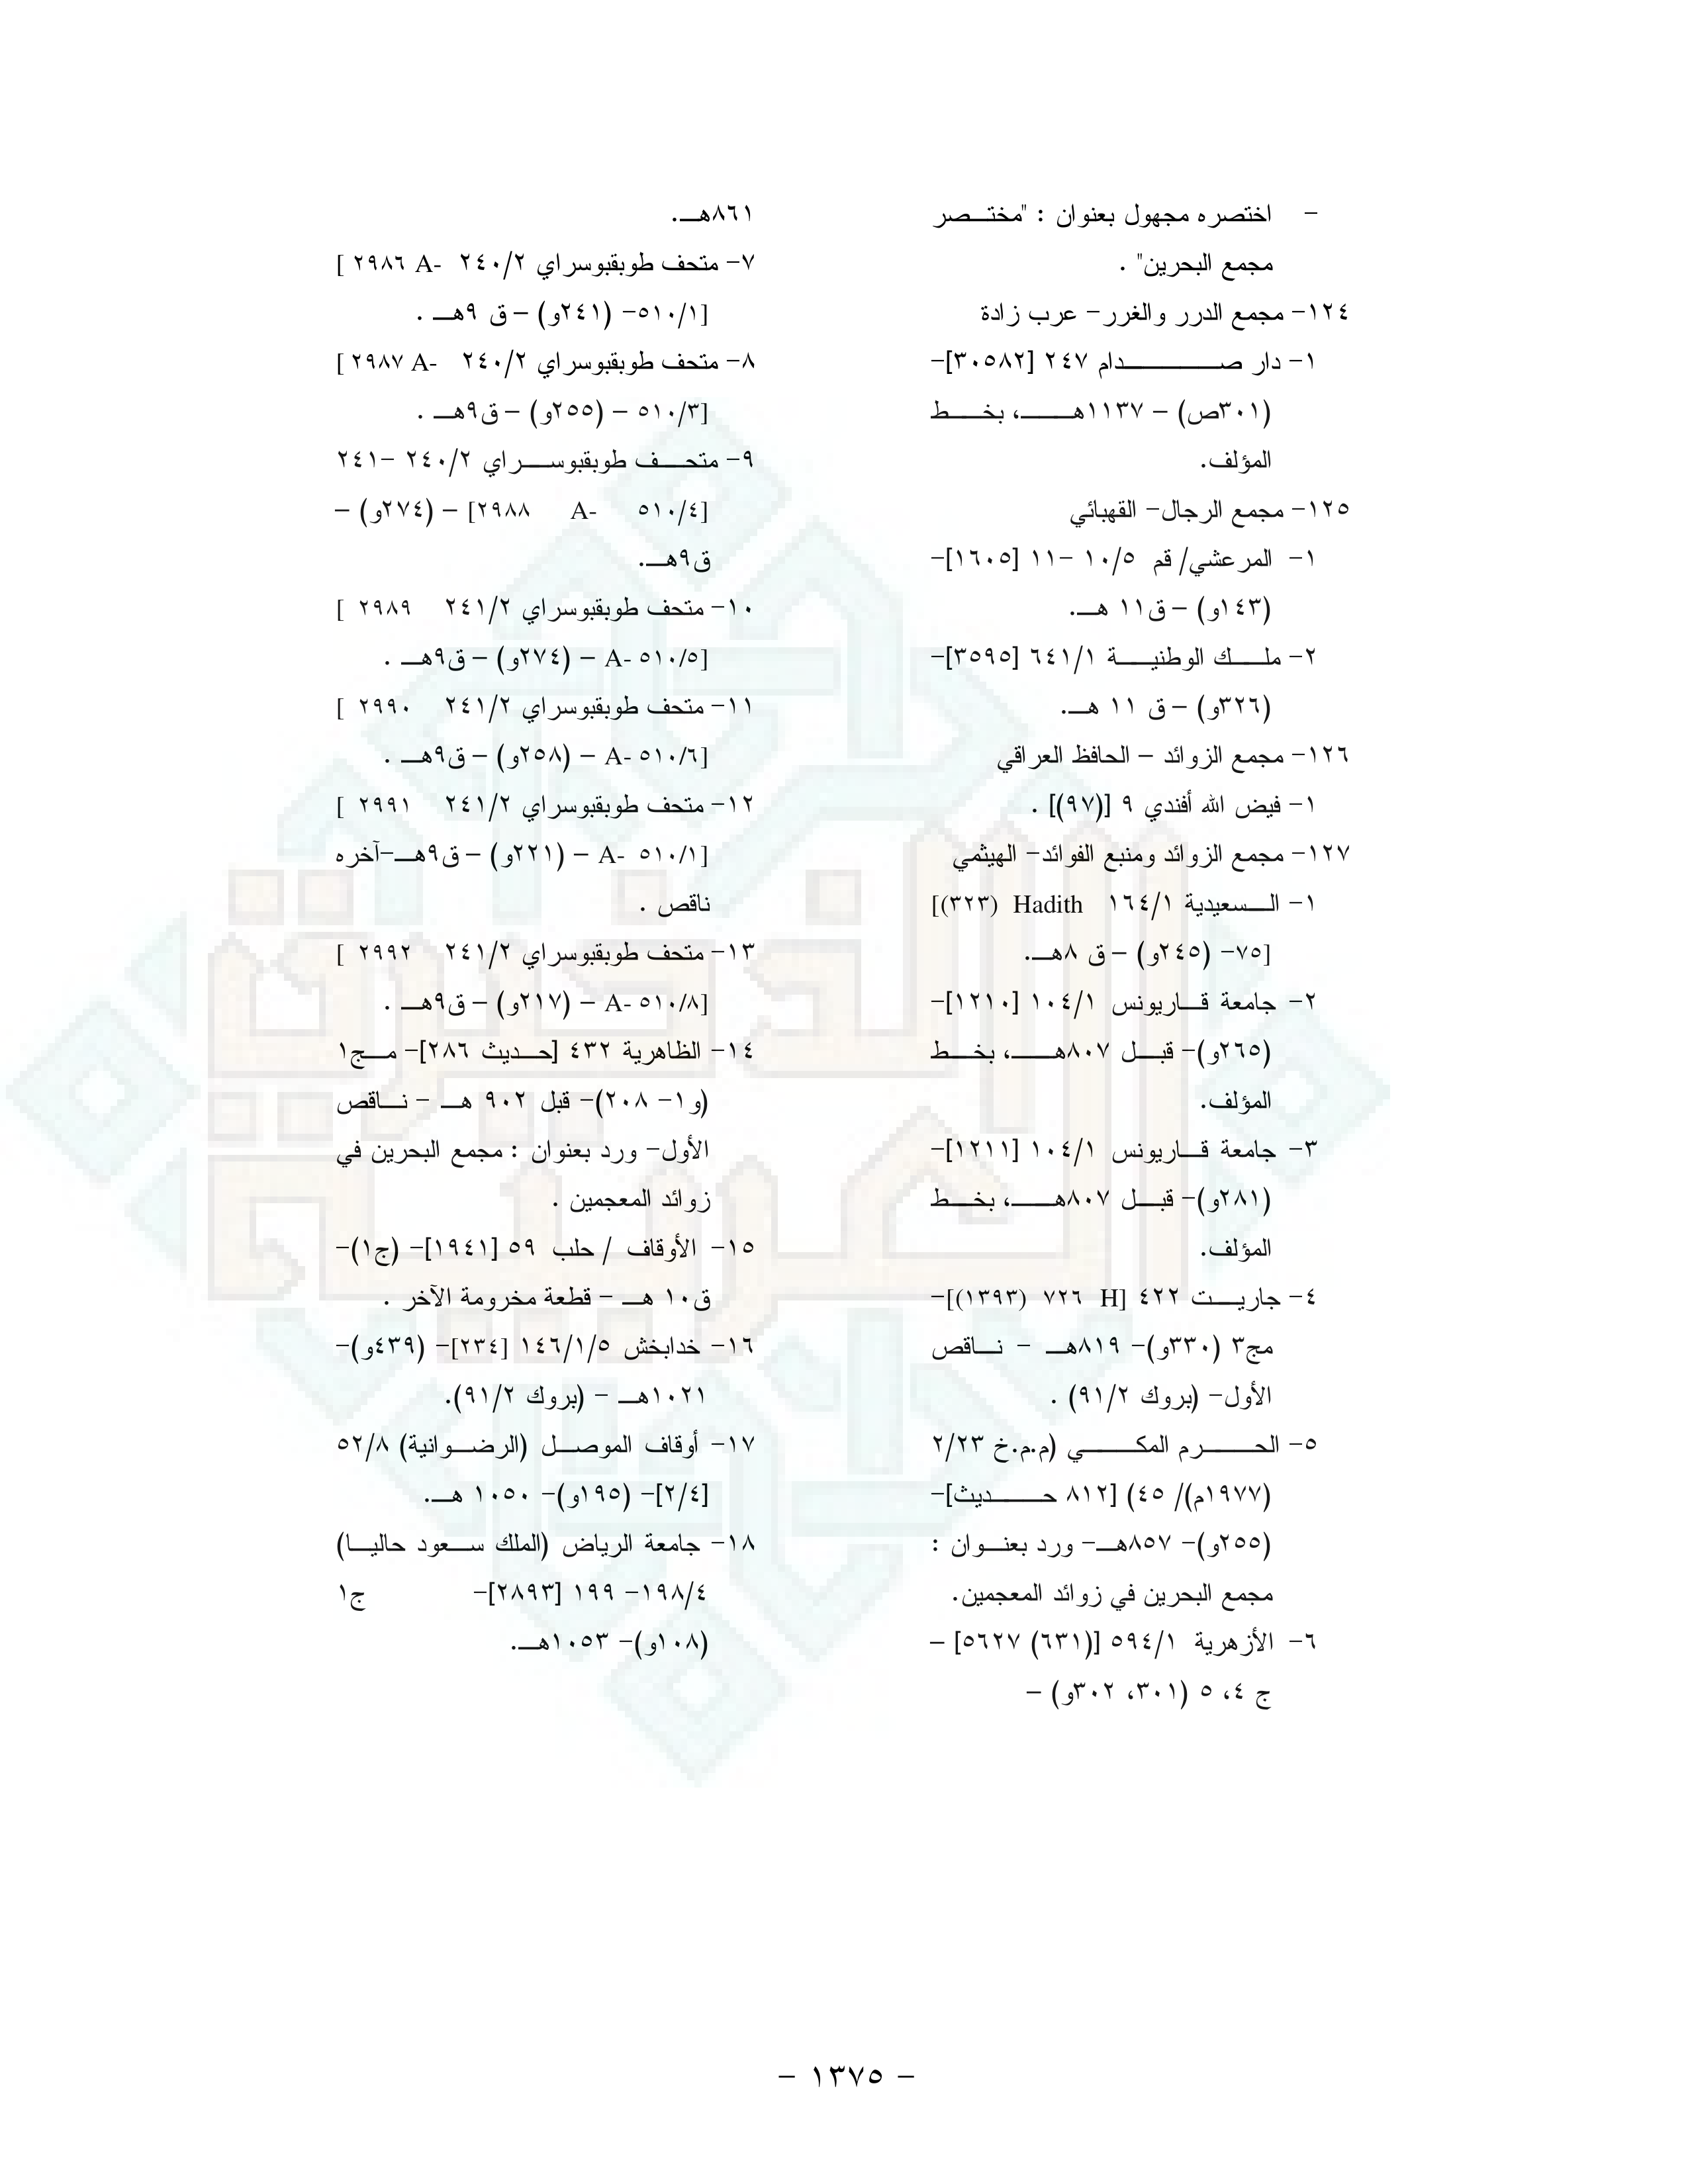 - اختصره مجهول بعنوان : "مختصر
مجمع البحرين" .
١٢٤- مجمع الدرر والغرر- عرب زادة
١- دار صدام ٢٤٧ [٣٠٥٨٢]-
(٣٠١ص) – ١١٣٧هـ، بخط
المؤلف.
١٢٥- مجمع الرجال- القهبائي
١- المرعشي/ قم ١٠/٥ -١١ [١٦٠٥]-
(١٤٣و) – ق١١ هـ.
٢- ملك الوطنية ٦٤١/١ [٣٥٩٥]-
(٣٢٦و) – ق ١١ هـ.
١٢٦- مجمع الزوائد – الحافظ العراقي
١- فيض الله أفندي ٩ [(٩٧)] .
١٢٧- مجمع الزوائد ومنبع الفوائد- الهيثمي
١- السعيدية ١٦٤/١ Hadith (٣٢٣)]
[٧٥- (٢٤٥و) – ق ٨هـ.
٢- جامعة قاريونس ١٠٤/١ [١٢١٠]-
(٢٦٥و)- قبل ٨٠٧هـ، بخط
المؤلف.
٣- جامعة قاريونس ١٠٤/١ [١٢١١]-
(٢٨١و)- قبل ٨٠٧هـ، بخط
المؤلف.
٤- جاريت ٤٢٢ [H ٧٢٦ (١٣٩٣)]-
مج٣ (٣٣٠و)- ٨١٩هـ - ناقص
الأول- (بروك ٩١/٢) .
٥- الحرم المكي (م.م.خ ٢/٢٣
(١٩٧٧م)/ ٤٥) [٨١٢ حديث]-
(٢٥٥و)- ٨٥٧هـ- ورد بعنوان :
مجمع البحرين في زوائد المعجمين.
٦- الأزهرية ٥٩٤/١ [(٦٣١) ٥٦٢٧] –
ج ٤، ٥ (٣٠١، ٣٠٢و) –
٨٦١هـ.
٧- متحف طوبقبوسراي ٢٤٠/٢ A- ٢٩٨٦ ]
[٥١٠/١- (٢٤١و) – ق ٩هـ .
٨- متحف طوبقبوسراي ٢٤٠/٢ A- ٢٩٨٧ ]
[٥١٠/٣ – (٢٥٥و) – ق٩هـ .
٩- متحف طوبقبوسراي ٢٤٠/٢ -٢٤١
[٥١٠/٤ A- ٢٩٨٨] – (٢٧٤و) –
ق٩هـ.
١٠- متحف طوبقبوسراي ٢٤١/٢ ٢٩٨٩ ]
[A- ٥١٠/٥ – (٢٧٤و) – ق٩هـ .
١١- متحف طوبقبوسراي ٢٤١/٢ ٢٩٩٠ ]
[A- ٥١٠/٦ – (٢٥٨و) – ق٩هـ .
١٢- متحف طوبقبوسراي ٢٤١/٢ ٢٩٩١ ]
[A- ٥١٠/١ – (٢٢١و) – ق٩هـ-آخره
ناقص .
١٣- متحف طوبقبوسراي ٢٤١/٢ ٢٩٩٢ ]
[A- ٥١٠/٨ – (٢١٧و) – ق٩هـ .
١٤- الظاهرية ٤٣٢ [حديث ٢٨٦]- مج١
(و١- ٢٠٨)- قبل ٩٠٢ هـ - ناقص
الأول- ورد بعنوان : مجمع البحرين في
زوائد المعجمين .
١٥- الأوقاف / حلب ٥٩ [١٩٤١]- (ج١)-
ق١٠ هـ - قطعة مخرومة الآخر .
١٦- خدابخش ١٤٦/١/٥ [٢٣٤]- (٤٣٩و)-
١٠٢١هـ - (بروك ٩١/٢).
١٧- أوقاف الموصل (الرضوانية) ٥٢/٨
[٢/٤]- (١٩٥و)- ١٠٥٠ هـ.
١٨- جامعة الرياض (الملك سعود حاليا)
١٩٨/٤- ١٩٩ [٢٨٩٣]- ج١
(١٠٨و)- ١٠٥٣هـ.
- ١٣٧٥ -
الذخيرة
العربية